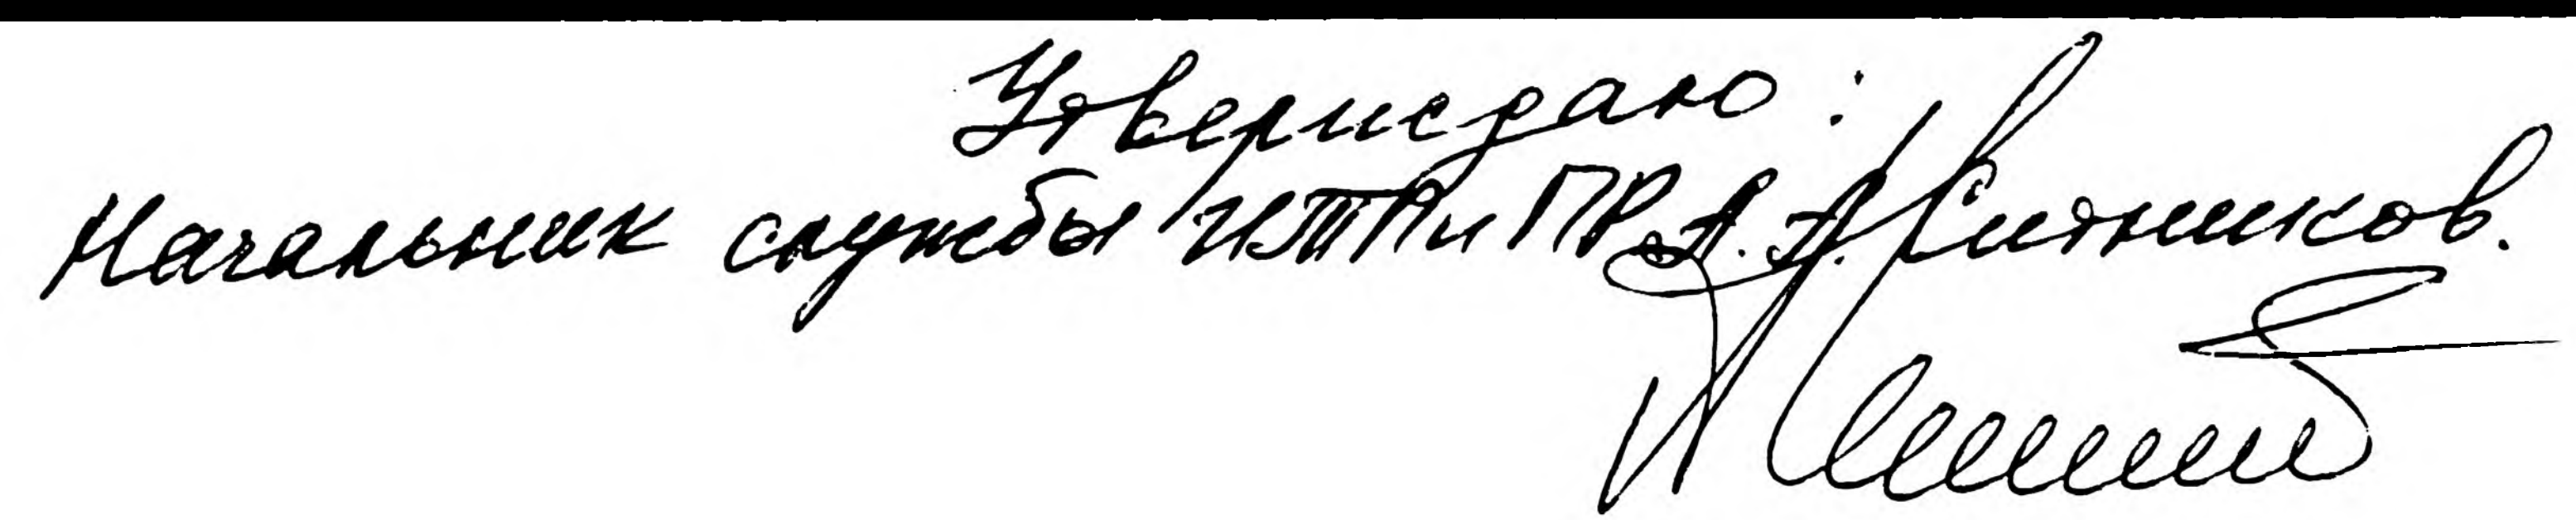 Утверждаю:
Начальник службы ИТР и ПР А.А. Ситников.